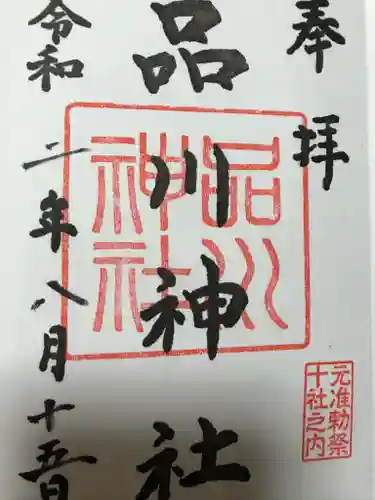 奉拝
品川神社
令和二年八月十五日
品川
神社
元准勅祭
十社之内